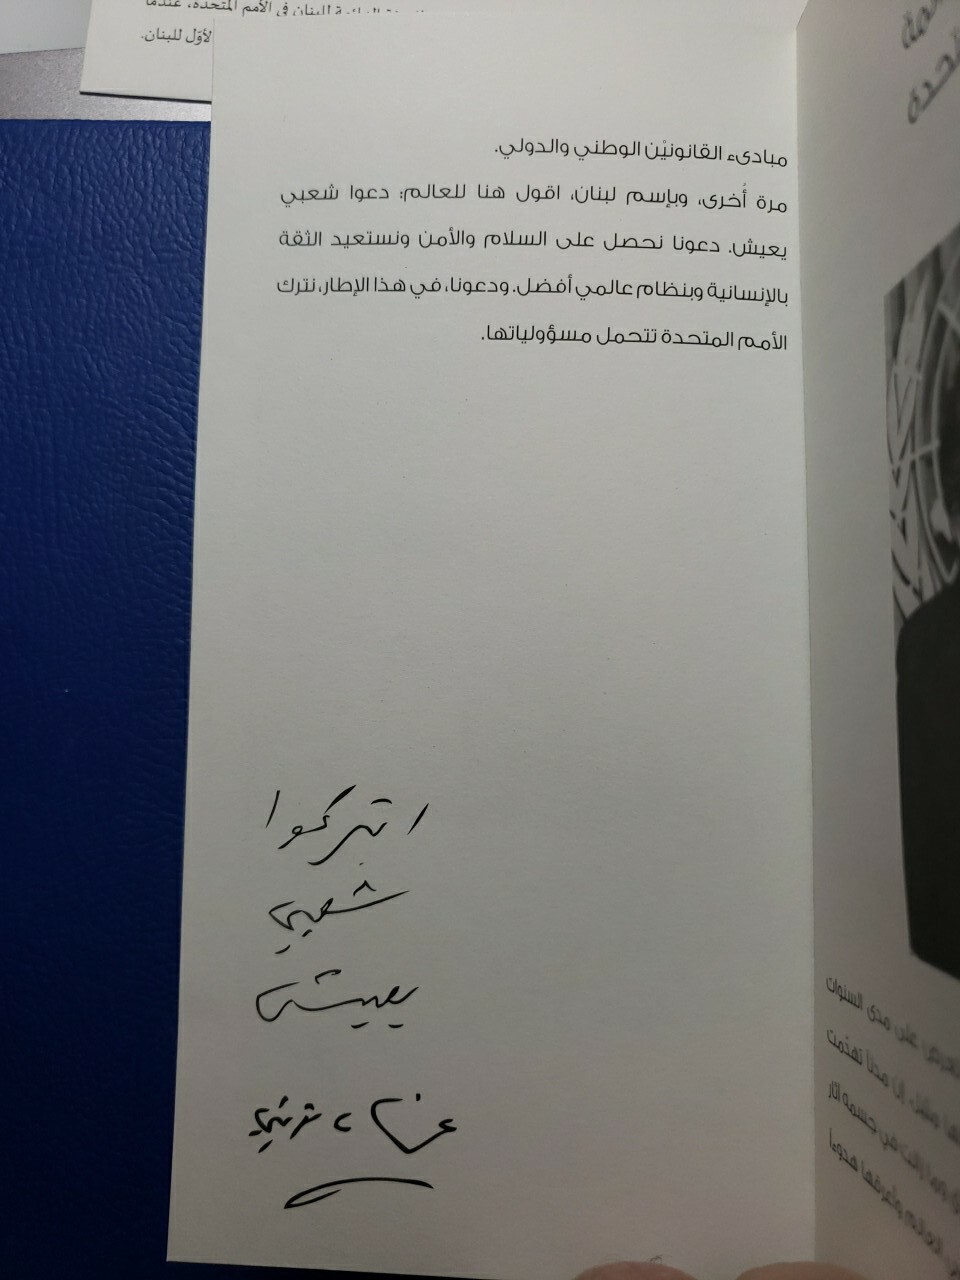 الدائمة للبنان في الأمم المتحدة، عندما
الأوّل للبنان.
مبادىء القانونيْن الوطني والدولي.
مرة أُخرى، وبإسم لبنان، اقول هنا للعالم: دعوا شعبي
يعيش. دعونا نحصل على السلام والأمن ونستعيد الثقة
بالإنسانية وبنظام عالمي أفضل. ودعونا، في هذا الإطار، نترك
الأمم المتحدة تتحمل مسؤولياتها.
اتركوا
شعبي
يعيش
غسان تويني
على مدى السنوات
مدناً تهدّمت
في جسمه آثار
العالم وأعرقها هدوءا